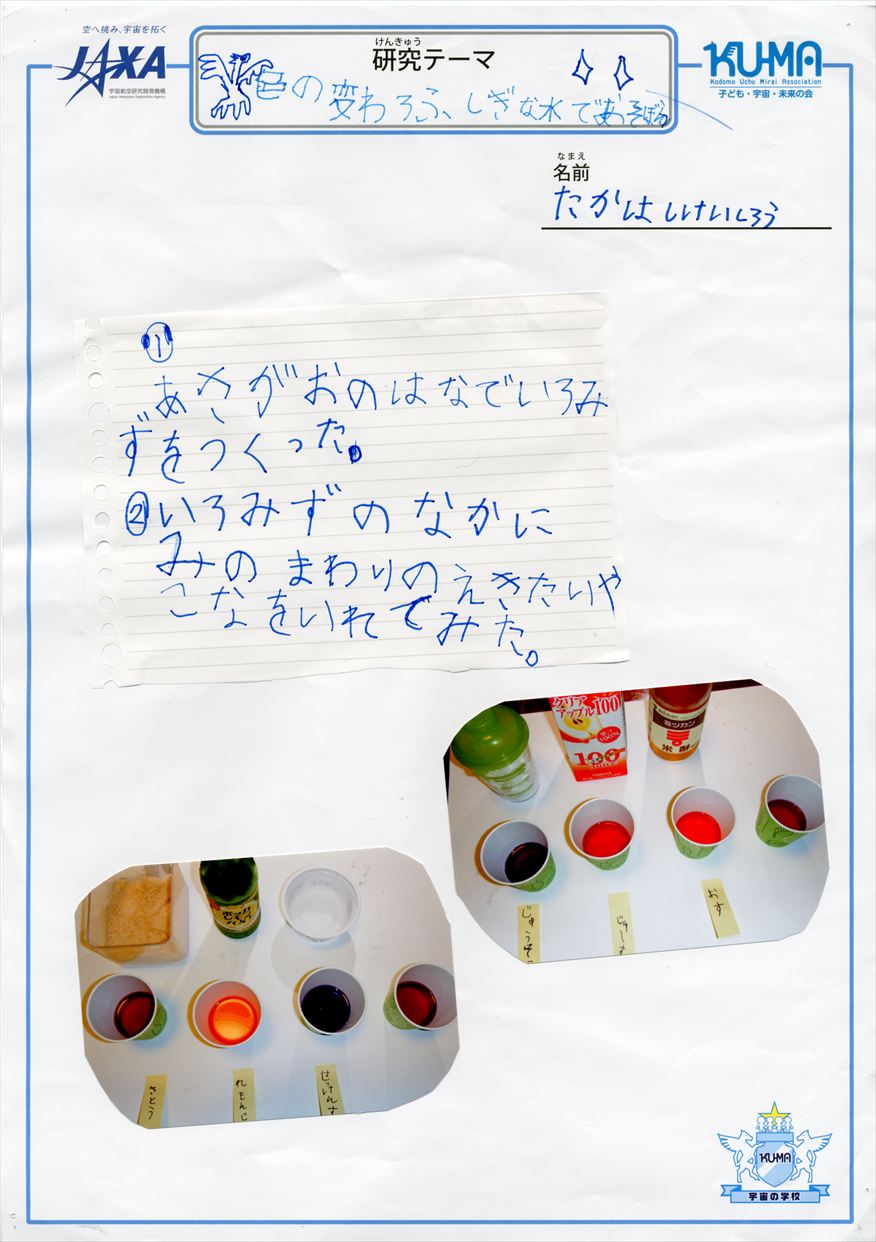 空へ挑み、宇宙を拓く
JAXA
宇宙航空研究開発機構
Japan Aerospace Exploration Agency
けんきゅう
研究テーマ
色の変わるふしぎな水であそぼう
KU-MA
Kodomo Uchu Mirai Association
子ども・宇宙・未来の会
なまえ
名前
たかはしけいしろう
①
あさがおのはなでいろみ
ずをつくった。
②いろみずのなかに
みのまわりのえきたいや
こなをいれてみた。
クリア
アップル100
100
ミツカン
米酢
じゅうそ
じゅーす
おす
ポッカ
レモン
100
さとう
れもんじ
せっけんす
KU-MA
宇宙の学校